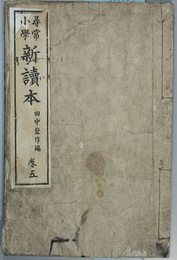 尋常
小學
新讀本
田中登作編
卷五